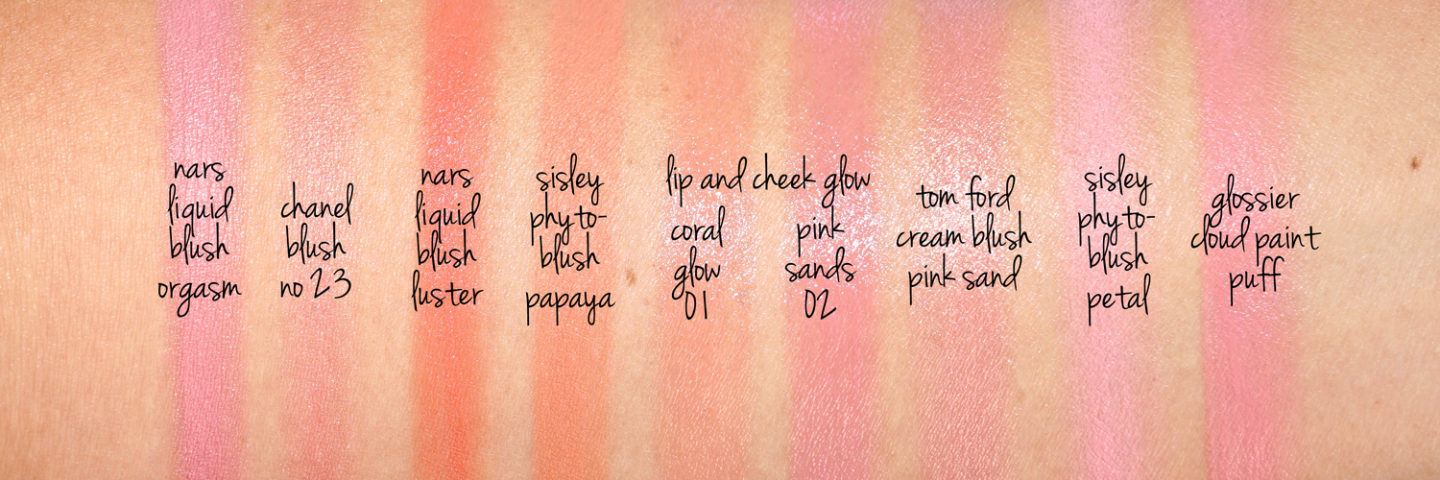 nars
liquid
blush
orgasm
chanel
blush
no 23
nars
liquid
blush
luster
sisley
phyto-
blush
papaya
lip and cheek glow
coral
glow
01
pink
sands
02
tom ford
cream blush
pink sand
sisley
phyto-
blush
petal
glossier
cloud paint
puff